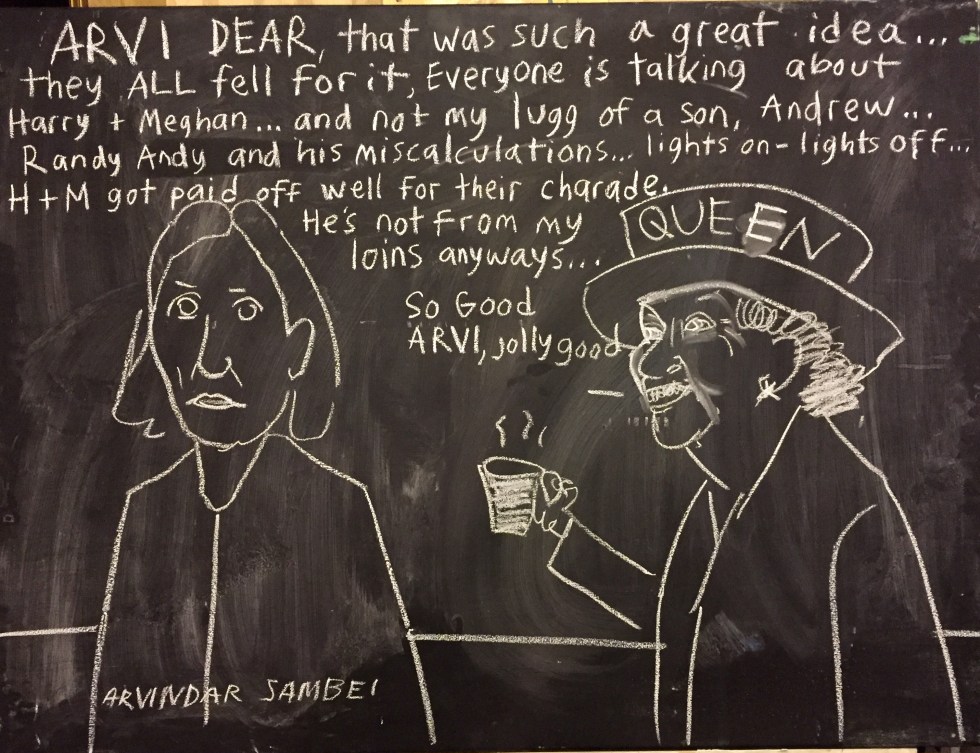 ARVI DEAR, that was such a great idea...
they ALL fell for it, Everyone is talking about
Harry + Meghan... and not my lugg of a son, Andrew...
Randy Andy and his miscalculations... lights on - lights off...
H+M got paid off well for their charade.
He's not from my
loins anyways...
QUEEN
So Good
ARVI, jolly good
ARVINDAR SAMBEI